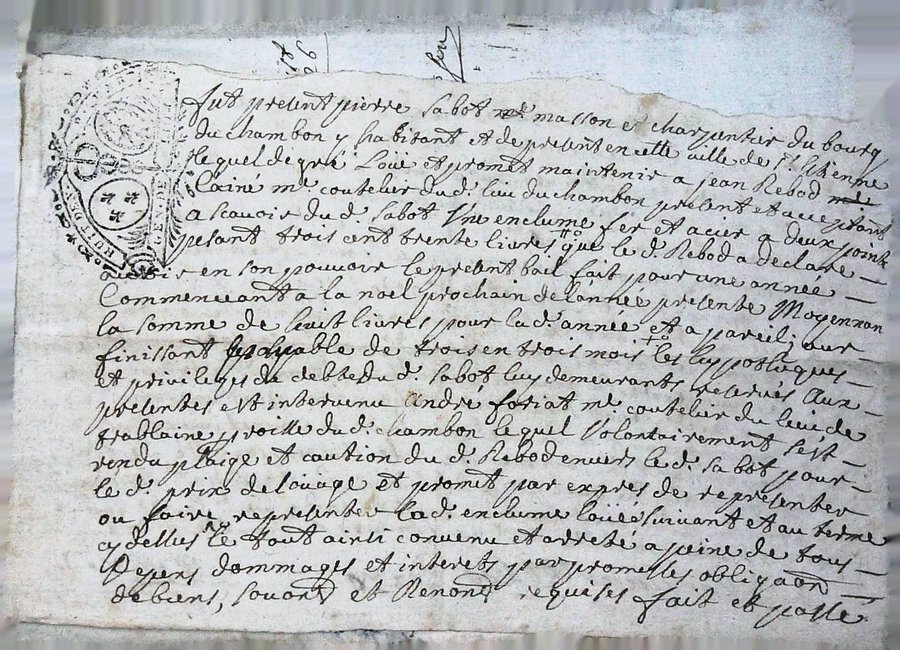 fut present pierre Sabot me masson et charpentier du bourg
du chambon y habitant et de present en cette ville de st Etienne
lequel de gré Loue et promet maintenir a jean Rebod
L'ainé me coutelier du d. lieu du chambon present et acceptant
a scavoir du d. Sabot Une enclume fer et acier a deux pointe
pesant trois cent trente livres que le d. Rebod a declaré
en son pouvoir le present bail fait pour une année
Commencant a la noel prochain de l'année presente Moyennan
la somme de huit livres pour la d. année et a pareil jour
finissant payable de trois en trois mois les hypotheques
et privileges de debte du d. Sabot luy demeurants reservés Aux
presentes est intervenu André foriat me coutelier du lieu de
trablaine proisse du d. chambon lequel Volontairement s'est
rendu plaige et caution du d. Rebod envers le d. Sabot pour
le d. prix de loüage et promet par expres de representer
ou faire representer la d. enclume loüéé suivant et au terme
cy dessus le tout ainsi convenu et arreté a peine de tous
Depens dommages et interets par promesses obligaon
de biens, soumons et Renons requises fait et passé